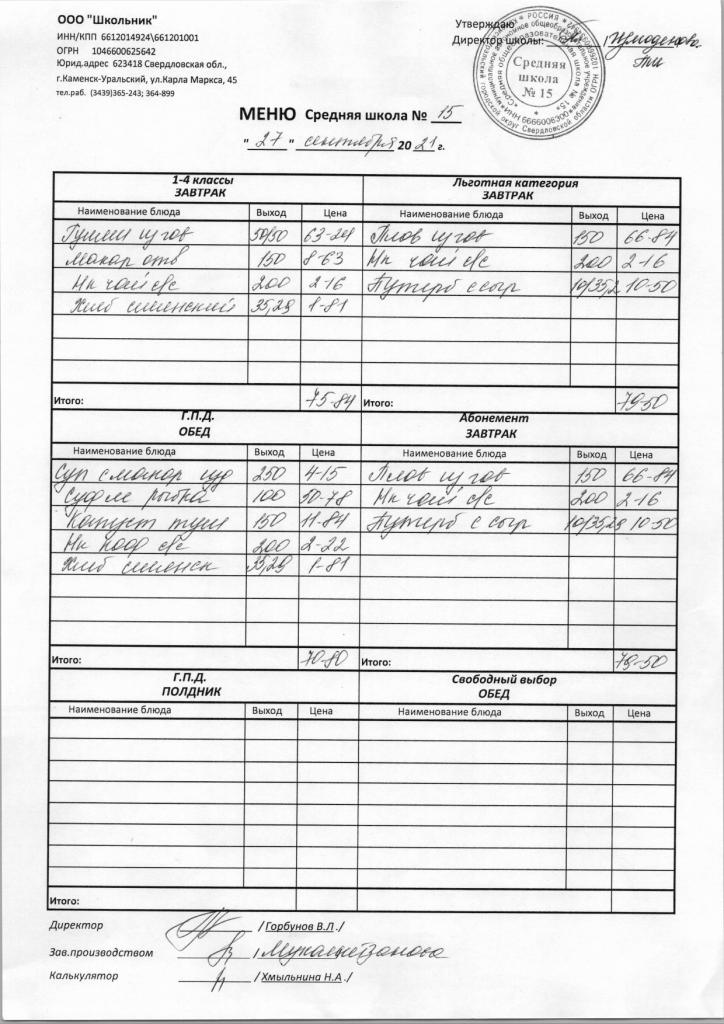 ООО "Школьник"
ИНН/КПП 6612014924\661201001
ОГРН 1046600625642
Юрид.адрес 623418 Свердловская обл.,
г.Каменск-Уральский, ул.Карла Маркса, 45
тел.раб. (3439)365-243; 364-899
Утверждаю
Директор школы:
Средняя
школа
№ 15
МЕНЮ Средняя школа № 15
"27" сентября 20 21 г.
1-4 классы
ЗАВТРАК
Наименование блюда Выход Цена
Гуляш из гов 50/50 63-24
Макар отв 150 8-63
Нп чай с/с 200 2-16
Хлеб сменский 35,29 1-81
Итого: 75-84
Льготная категория
ЗАВТРАК
Наименование блюда Выход Цена
Плов из гов 150 66-84
Нп чай с/с 200 2-16
Бутерб с сыр 10/35,2 10-50
Итого: 79-50
Г.П.Д.
ОБЕД
Наименование блюда Выход Цена
Суп с макар изд 250 4-15
Суфле рыбна 100 50-78
Капуст туш 150 11-84
Нп кофе с/с 200 2-22
Хлеб сменск 35,29 1-81
Итого: 70-80
Абонемент
ЗАВТРАК
Наименование блюда Выход Цена
Плов из гов 150 66-84
Нп чай с/с 200 2-16
Бутерб с сыр 10/35,29 10-50
Итого: 79-50
Г.П.Д.
ПОЛДНИК
Наименование блюда Выход Цена
Итого:
Свободный выбор
ОБЕД
Наименование блюда Выход Цена
Директор / Горбунов В.Л./
Зав.производством /
Калькулятор / Хмыльнина Н.А./